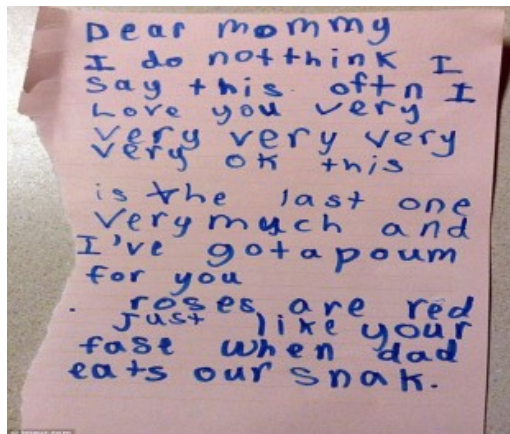 Dear mommy
I do not think I
say this oftn I
Love you very
very very very
very ok this
is the last one
very much and
I've got a poum
for you
. roses are red
just like your
fase when dad
eats our snak.